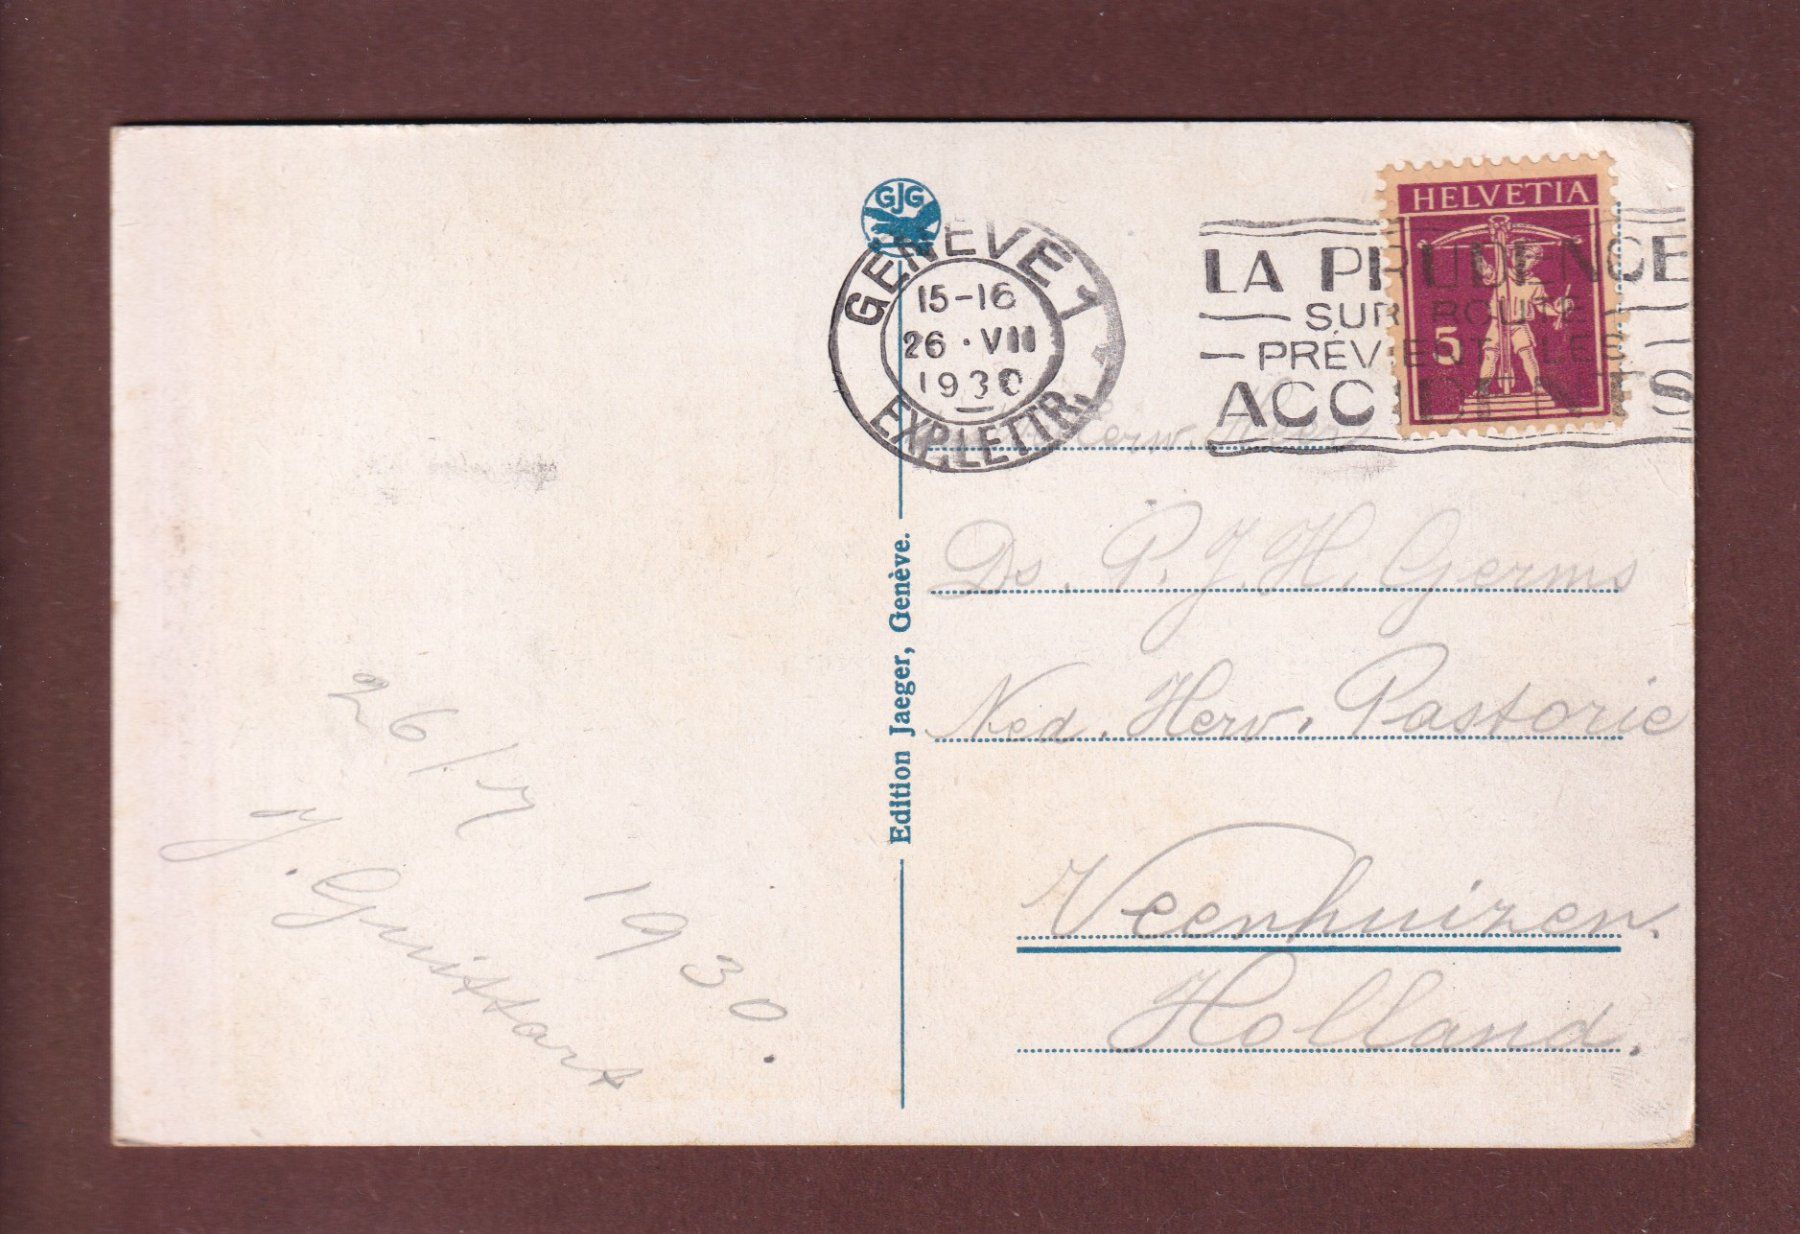 GJG
GENÈVE 1
15-16
26·VII
1930
EXP. LETTR.
HELVETIA
5
LA PRUDENCE
SUR ROUTE
PRÉVIENT LES
ACCIDENTS
Ds. P. J. H. Germs
Ned. Herv. Pastorie
Veenhuizen.
Holland.
Edition Jaeger, Genève.
26/7 1930.